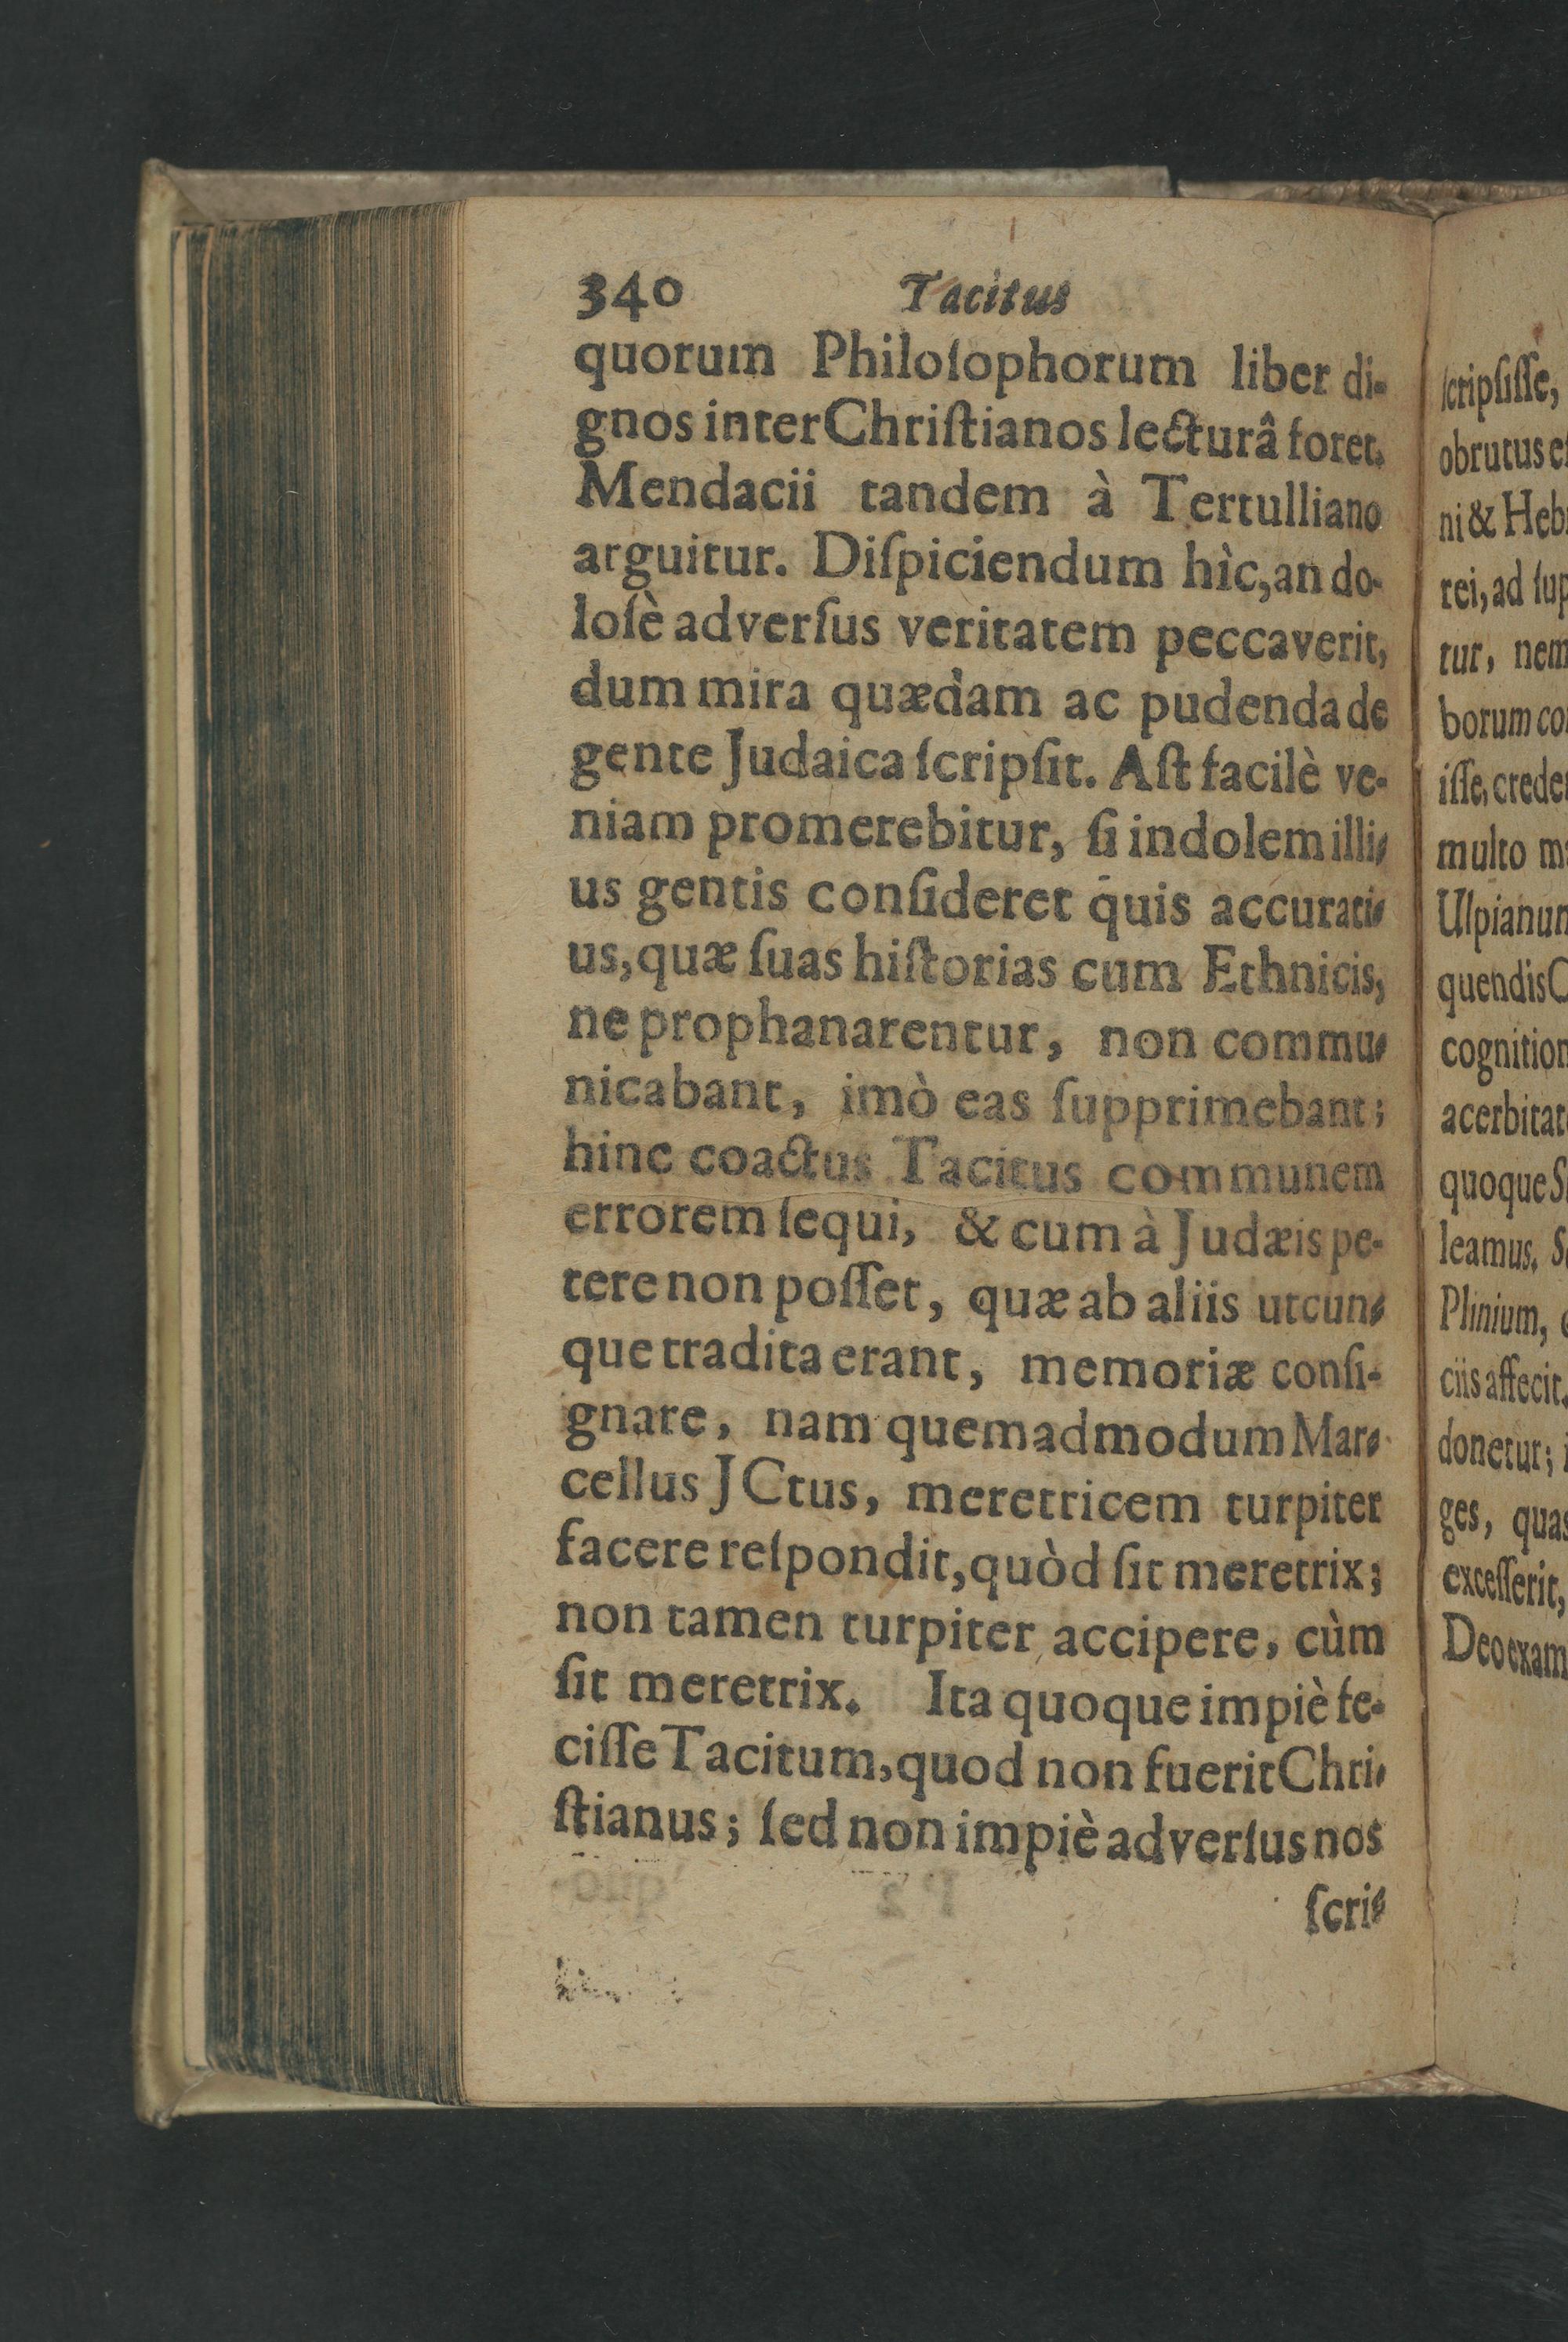 340 Tacitus
quorum Philoſophorum liber di-
gnos inter Chriſtianos lecturâ foret.
Mendacii tandem à Tertulliano
arguitur. Diſpiciendum hìc, an do-
loſè adverſus veritatem peccaverit,
dum mira quædam ac pudenda de
gente Judaica ſcripſit. Aſt facilè ve-
niam promerebitur, ſi indolem illi-
us gentis conſideret quis accurati-
us, quæ ſuas hiſtorias cum Ethnicis,
ne prophanarentur, non commu-
nicabant, imò eas ſupprimebant;
hinc coactus Tacitus communem
errorem ſequi, & cum à Judæis pe-
tere non poſſet, quæ ab aliis utcun-
que tradita erant, memoriæ conſi-
gnare, nam quemadmodum Mar-
cellus JCtus, meretricem turpiter
facere reſpondit, quòd ſit meretrix;
non tamen turpiter accipere, cùm
ſit meretrix. Ita quoque impiè fe-
ciſſe Tacitum, quod non fuerit Chri-
ſtianus; ſed non impiè adverſus nos
ſcri-
ſcripſiſſe,
obrutus eſ
ni & Heb
rei, ad ſup
tur, nem
borum co
iſſe, crede
multo m
Ulpianum
quendis C
cognition
acerbitat
quoque S
leamus. S
Plinium,
ciis affecit.
donetur; i
ges, quas
exceſſerit,
Deo exam